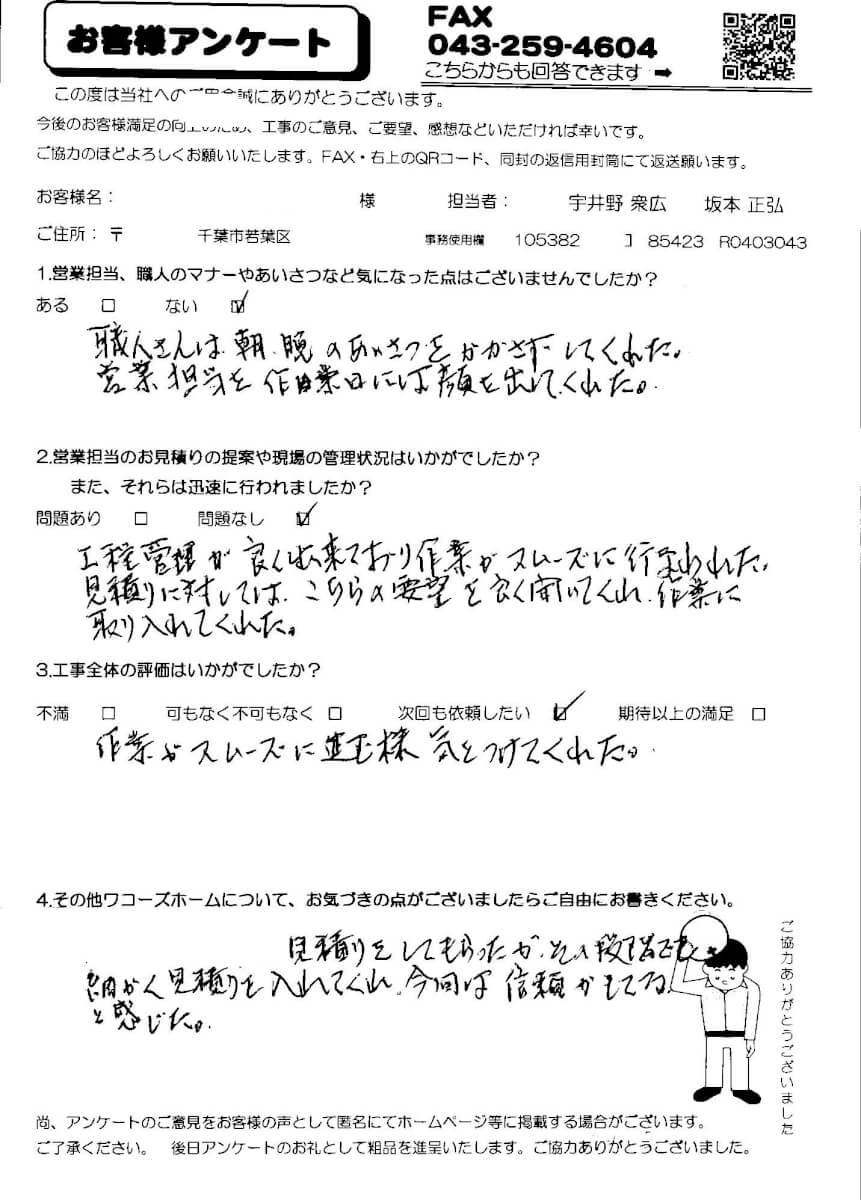 お客様アンケート
FAX
043-259-4604
こちらからも回答できます ➡
この度は当社への 誠にありがとうございます。
今後のお客様満足の向上のため、工事のご意見、ご要望、感想などいただければ幸いです。
ご協力のほどよろしくお願いいたします。FAX・右上のQRコード、同封の返信用封筒にて返送願います。
お客様名： 様 担当者： 宇井野 衆広 坂本 正弘
ご住所：〒 千葉市若葉区 事務使用欄 105382 85423 R0403043
1.営業担当、職人のマナーやあいさつなど気になった点はございませんでしたか？
ある □ ない ☑
職人さんは、朝、晩のあいさつをかかさずしてくれた。
営業担当も作業日には顔を出してくれた。
2.営業担当のお見積りの提案や現場の管理状況はいかがでしたか？
また、それらは迅速に行われましたか？
問題あり □ 問題なし ☑
工程管理が良く出来ており作業がスムーズに行なわれた。
見積りに対しては、こちらの要望を良く聞いてくれ、作業に
取り入れてくれた。
3.工事全体の評価はいかがでしたか？
不満 □ 可もなく不可もなく □ 次回も依頼したい ☑ 期待以上の満足 □
作業がスムーズに進む様気をつけてくれた。
4.その他ワコーズホームについて、お気づきの点がございましたらご自由にお書きください。
見積りをしてもらったが、その段階でも
細かく見積りを入れてくれ、今回は信頼がもてる
と感じた。
ご協力ありがとうございました
尚、アンケートのご意見をお客様の声として匿名にてホームページ等に掲載する場合がございます。
ご了承ください。 後日アンケートのお礼として粗品を進呈いたします。ご協力ありがとうございました。